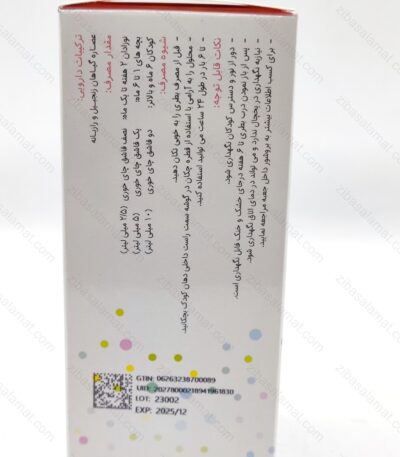 ترکیبات دارویی:
عصاره گیاهان زنجبیل و رازیانه
مقدار مصرف:
نوزادان ۲ هفته تا یک ماه: نصف قاشق چای خوری (۲/۵ میلی لیتر)
بچه های ۱ تا ۶ ماه: یک قاشق چای خوری (۵ میلی لیتر)
کودکان ۶ ماه و بالاتر: دو قاشق چای خوری (۱۰ میلی لیتر)
شیوه مصرف:
- قبل از مصرف بطری را به خوبی تکان دهید.
- محلول را به آرامی با استفاده از قطره چکان در گوشه سمت راست داخلی دهان کودک بچکانید.
- تا ۶ بار در طول ۲۴ ساعت می توانید استفاده کنید.
نکات قابل توجه:
- دور از نور و دسترس کودکان نگهداری شود.
- پس از باز نمودن درب بطری تا ۶ هفته درجای خشک و خنک قابل نگهداری است.
- نیاز به نگهداری در یخچال ندارد و می تواند در دمای اتاق نگهداری شود.
- برای کسب اطلاعات بیشتر به بروشور داخل جعبه مراجعه نمایید.
GTIN: 06263238700089
UID: 20278000218941961830
LOT: 23002
EXP: 2025/12
zibasalamat.com